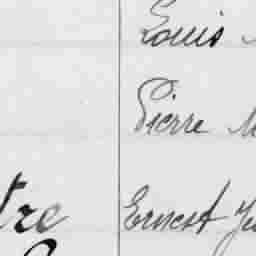 Louis
Pierre M
tre
Ernest